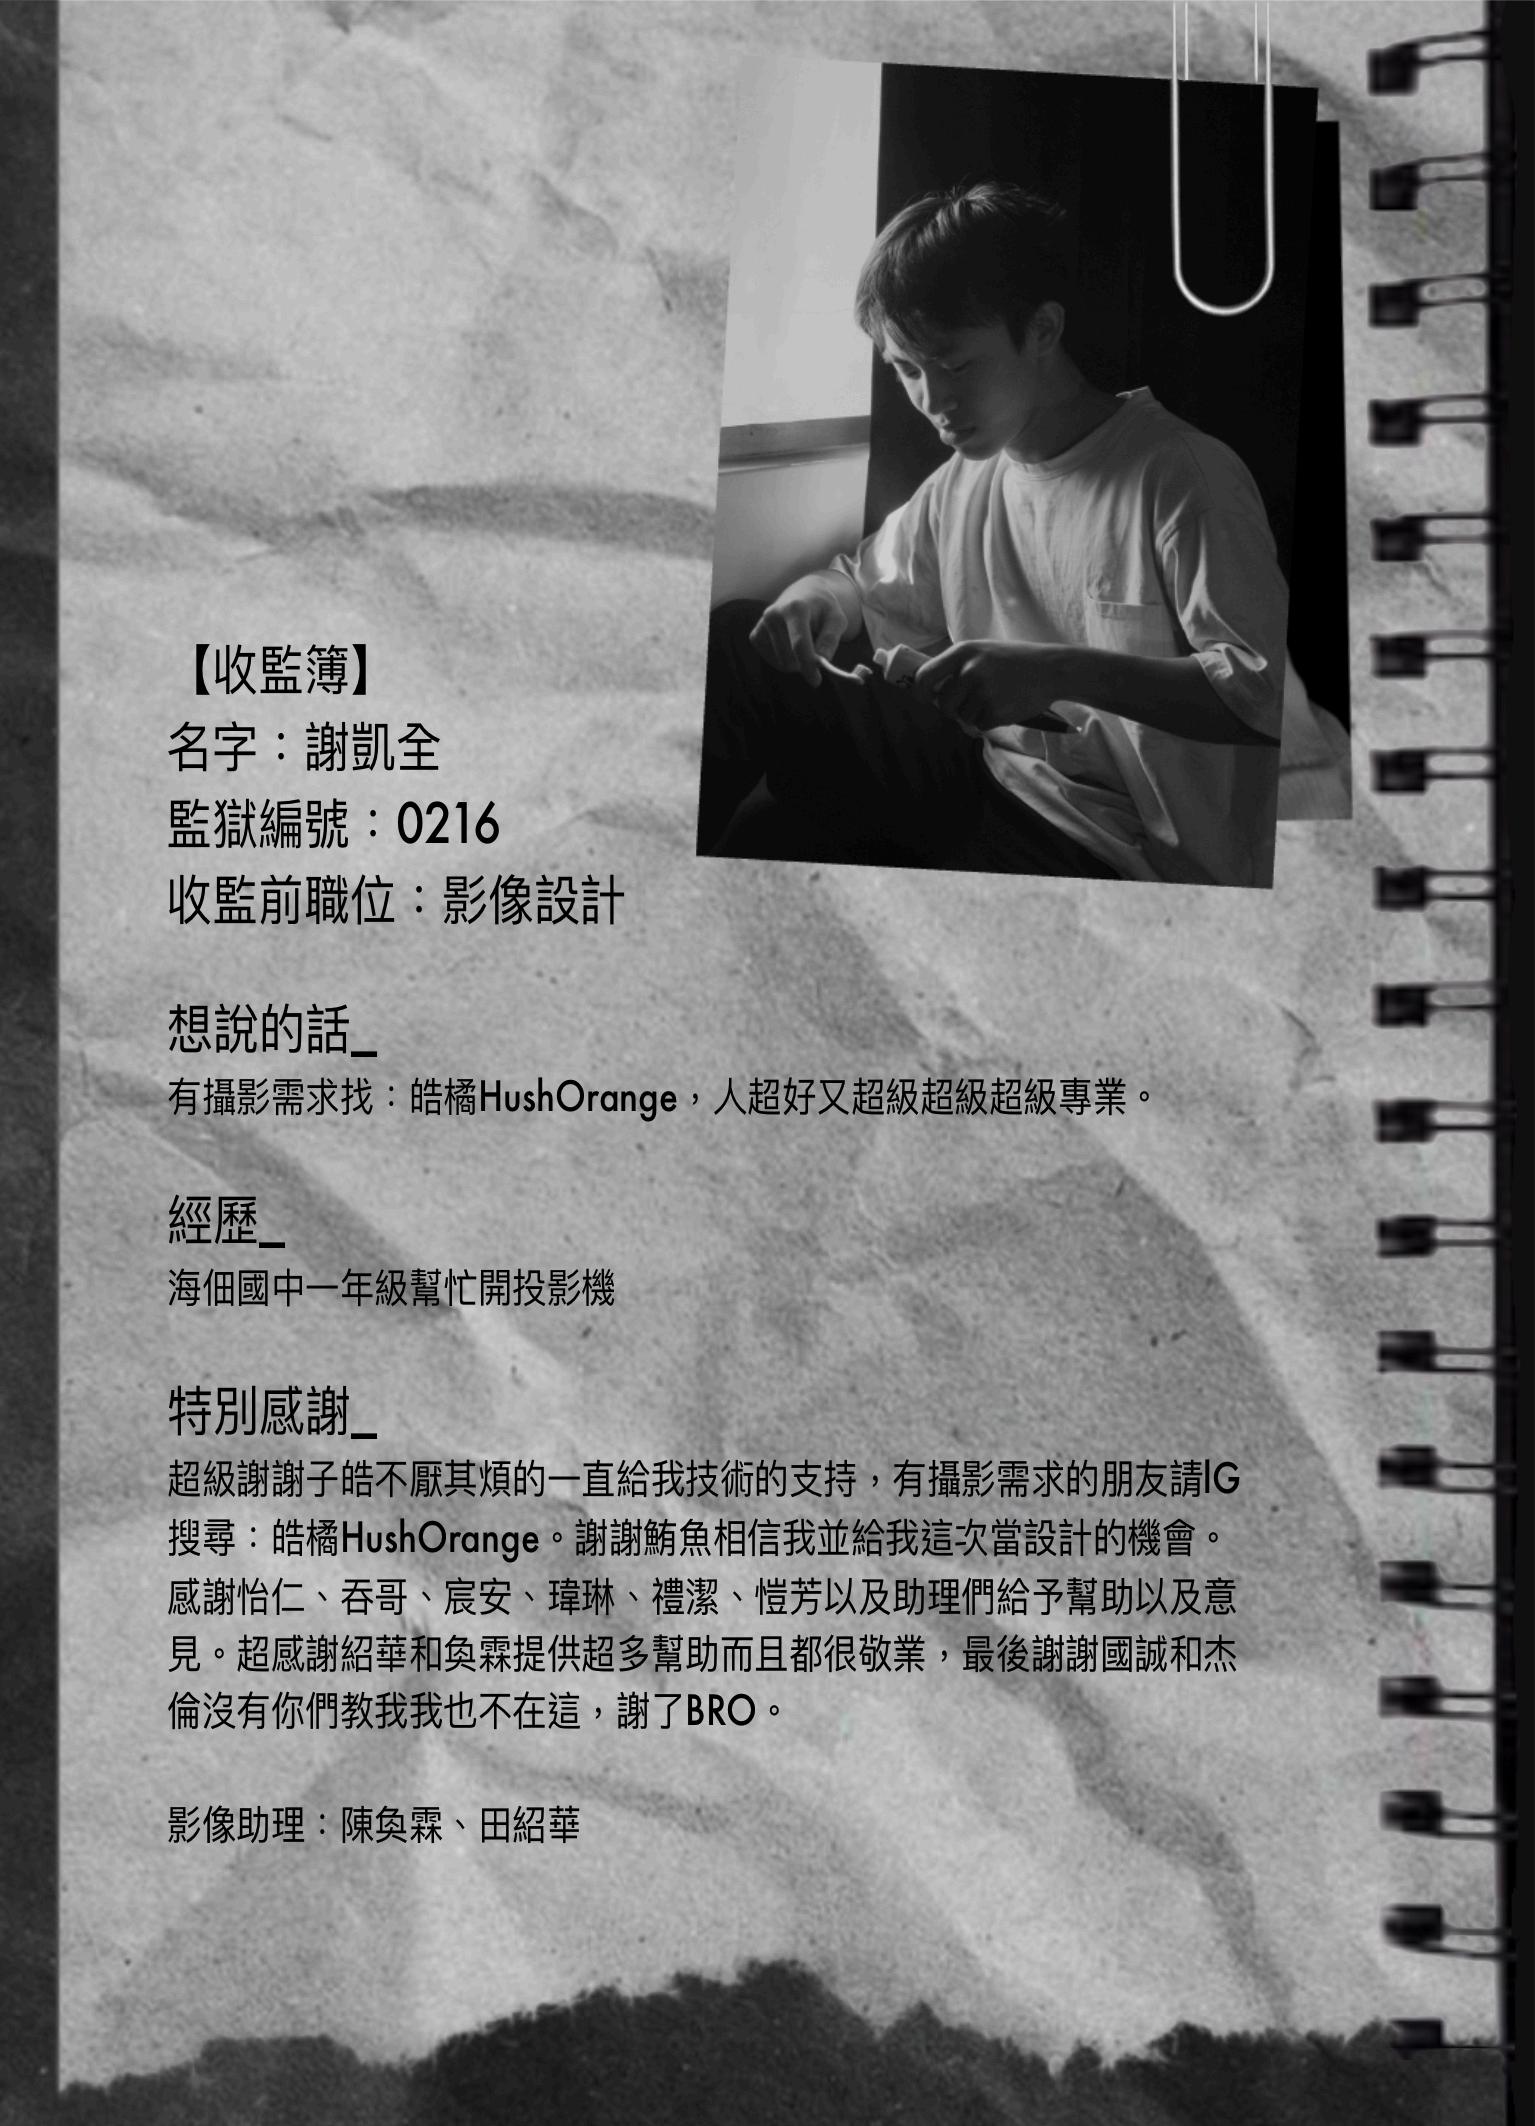 【收監簿】
名字：謝凱全
監獄編號：0216
收監前職位：影像設計
想說的話_
有攝影需求找：皓橘HushOrange，人超好又超級超級超級專業。
經歷_
海佃國中一年級幫忙開投影機
特別感謝_
超級謝謝子皓不厭其煩的一直給我技術的支持，有攝影需求的朋友請IG
搜尋：皓橘HushOrange。謝謝鮪魚相信我並給我這次當設計的機會。
感謝怡仁、吞哥、宸安、瑋琳、禮潔、愷芳以及助理們給予幫助以及意
見。超感謝紹華和奐霖提供超多幫助而且都很敬業，最後謝謝國誠和杰
倫沒有你們教我我也不在這，謝了BRO。
影像助理：陳奐霖、田紹華